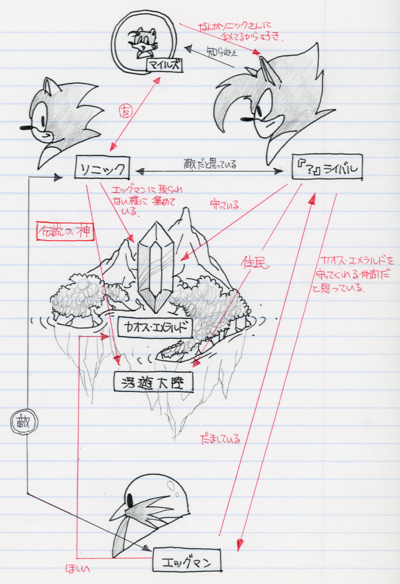 なんかソニックさんに
似てるからすき.
知らねぇ
マイルズ
友
ソニック
敵だと思っている
『?』ライバル
エッグマンに取られ
ない様に集めて
いる.
守っている
伝説の神
住民
カオス・エメラルドを
守ってくれる仲間だ
と思っている
カオス・エメラルド
浮遊大陸
敵
だましている
エッグマン
ほしい